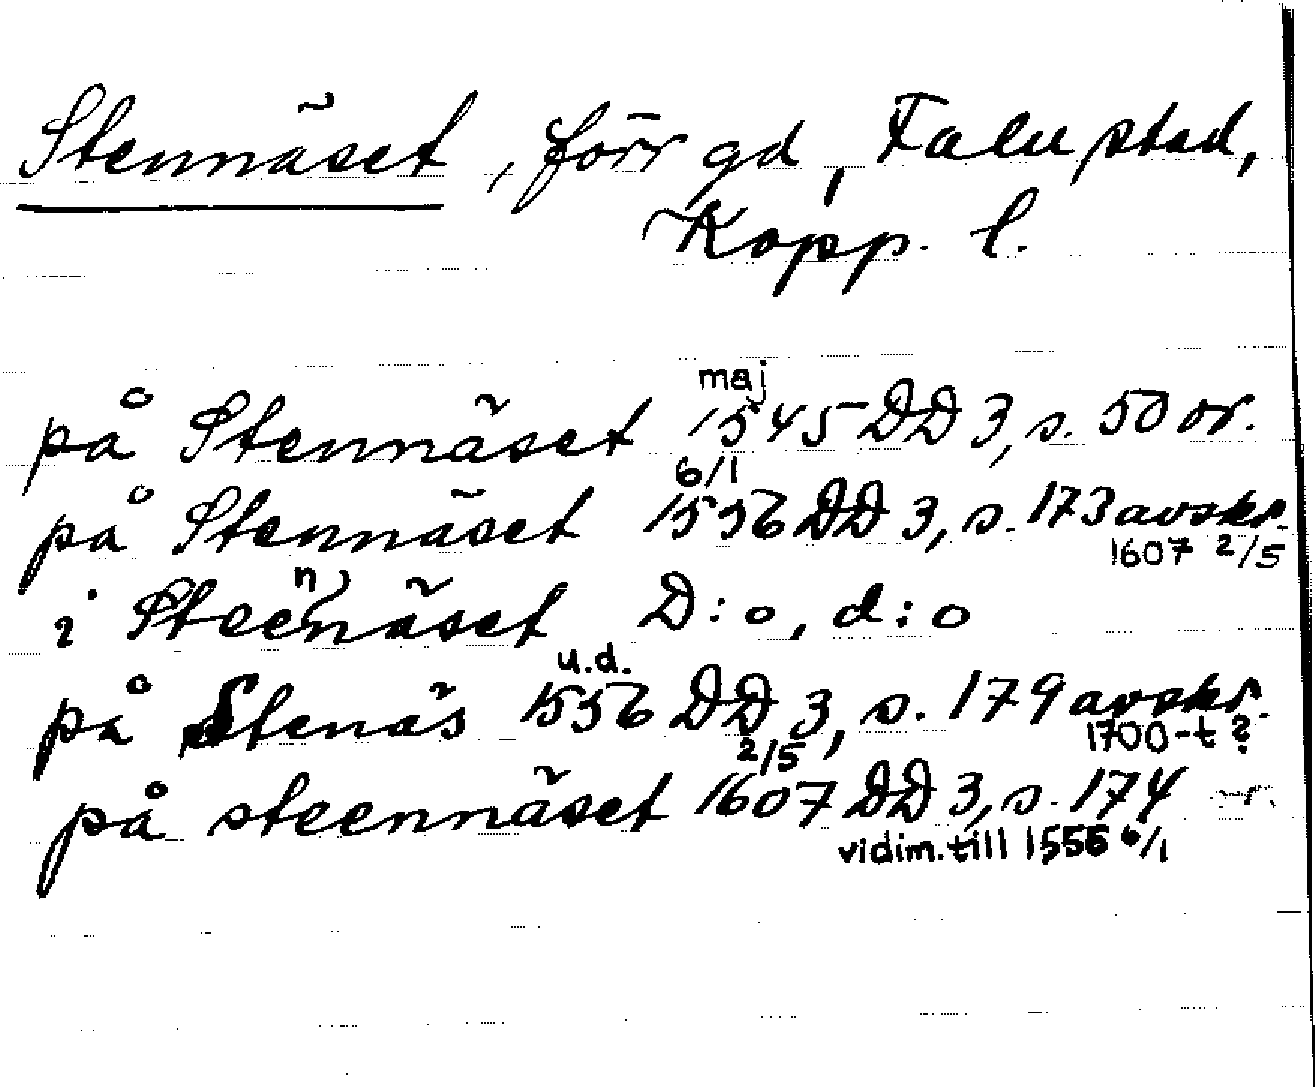 Stennäset, förr gd, Falu stad,
Kopp. l.
maj
på Stennäset 1545 DD 3, s. 50 or.
6/1
på Stennäset 1556 DD 3, s. 173 avskr.
1607 2/5
n
i Steenäset D:o, d:o
u.d.
på Stenäs 1556 DD 3, s. 179 avskr.
1700-t ?
2/5
på steennäset 1607 DD 3, s. 174
vidim. till 1556 6/1